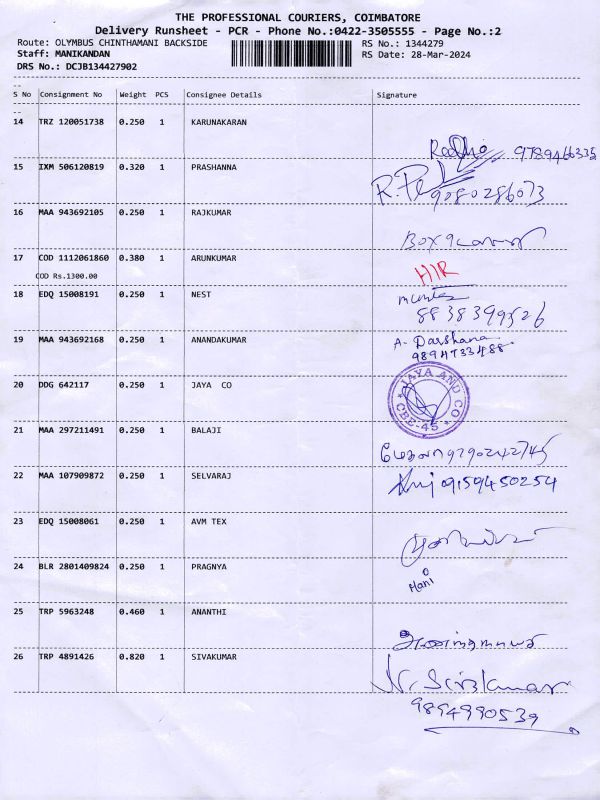 THE PROFESSIONAL COURIERS, COIMBATORE
Delivery Runsheet - PCR - Phone No.:0422-3505555 - Page No.:2
Route: OLYMBUS CHINTHAMANI BACKSIDE
RS No.: 1344279
Staff: MANIKANDAN
RS Date: 28-Mar-2024
DRS No.: DCJB134427902
S No Consignment No Weight PCS Consignee Details Signature
14 TRZ 120051738 0.250 1 KARUNAKARAN
Radha 9789466335
15 IXM 506120819 0.320 1 PRASHANNA
9080286073
16 MAA 943692105 0.250 1 RAJKUMAR
Box
17 COD 1112061860 0.380 1 ARUNKUMAR
COD Rs.1300.00
HIR
18 EDQ 15008191 0.250 1 NEST
8838399526
19 MAA 943692168 0.250 1 ANANDAKUMAR
A. Darshana
9894733488
20 DDG 642117 0.250 1 JAYA CO
JAYA AND CO
CBE-45
21 MAA 297211491 0.250 1 BALAJI
மேகலா 9790242745
22 MAA 107909872 0.250 1 SELVARAJ
9159450254
23 EDQ 15008061 0.250 1 AVM TEX
24 BLR 2801409824 0.250 1 PRAGNYA
Mani
25 TRP 5963248 0.460 1 ANANTHI
26 TRP 4891426 0.820 1 SIVAKUMAR
N. Sivakumar
9894990539